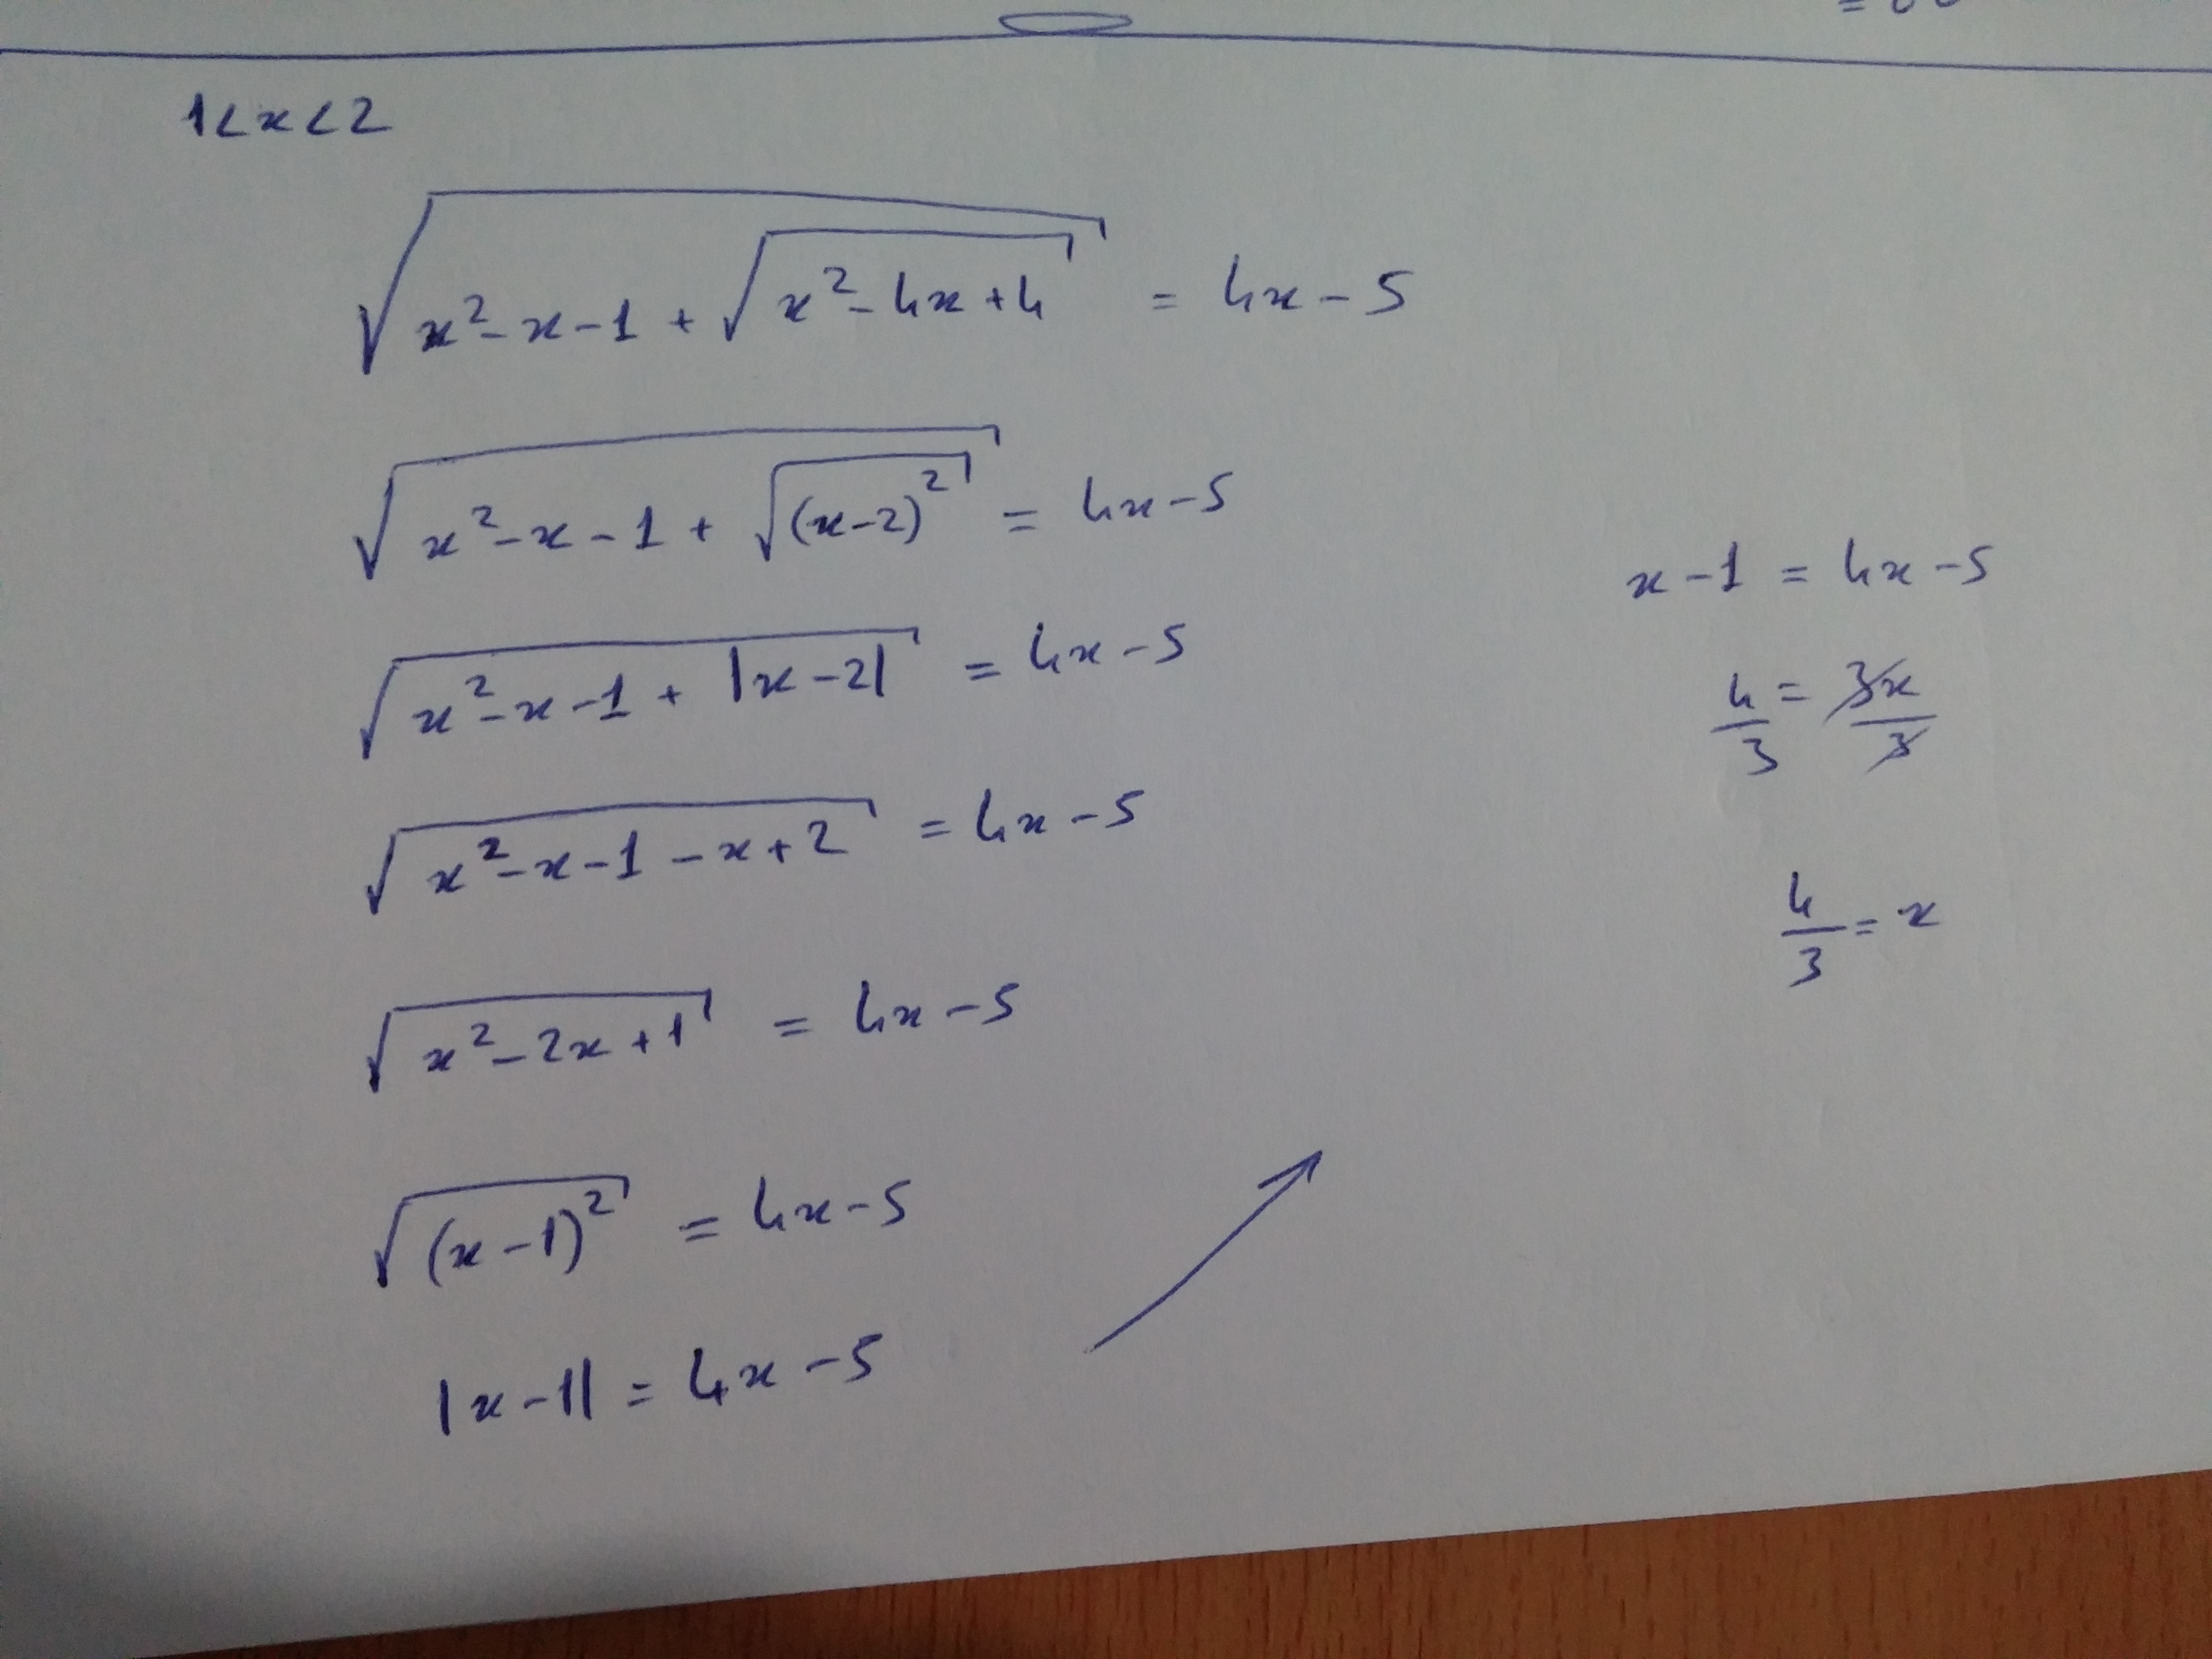 1<x<2
√(x²-x-1+√(x²-4x+4)) = 4x-5
√(x²-x-1+√((x-2)²)) = 4x-5
√(x²-x-1+|x-2|) = 4x-5
√(x²-x-1-x+2) = 4x-5
√(x²-2x+1) = 4x-5
√((x-1)²) = 4x-5
|x-1| = 4x-5
x-1 = 4x-5
4/3 = 3x/3
4/3 = x